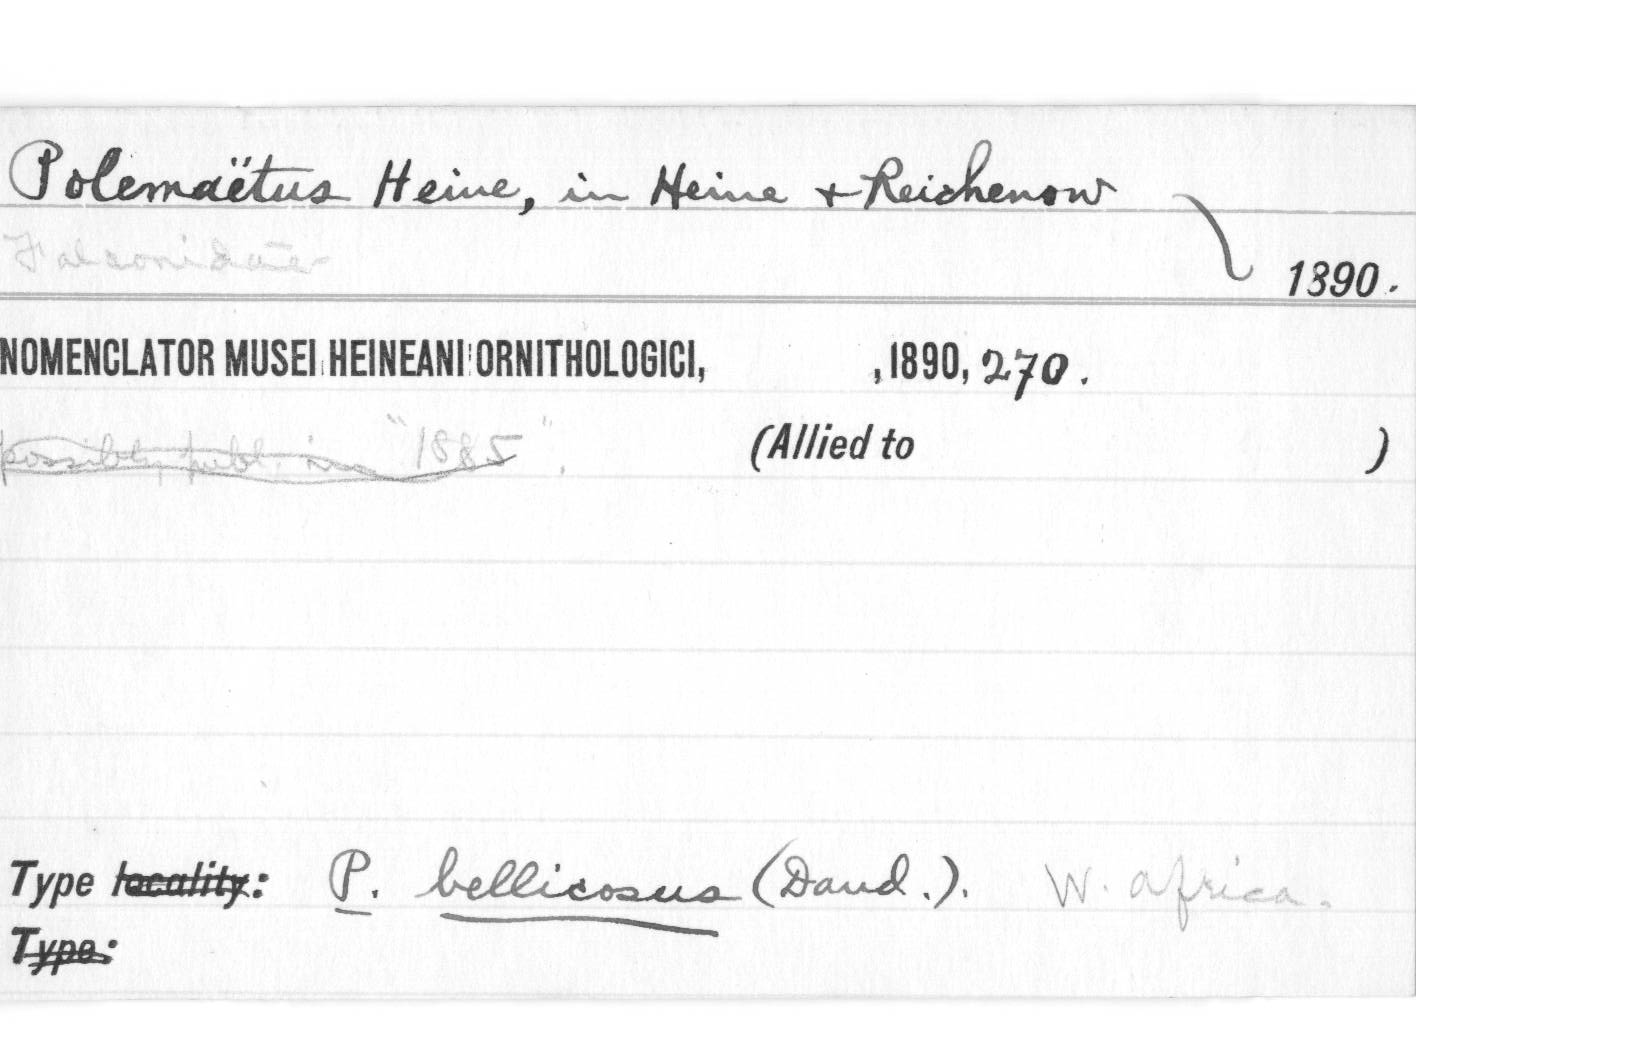 Polemaëtus Heine, in Heine + Reichenow
Falconidae
1890.
NOMENCLATOR MUSEI HEINEANI ORNITHOLOGICI, , 1890, 270.
possibly publ. in "1885".
(Allied to )
Type locality: P. bellicosus (Daud.). W. Africa.
Type: